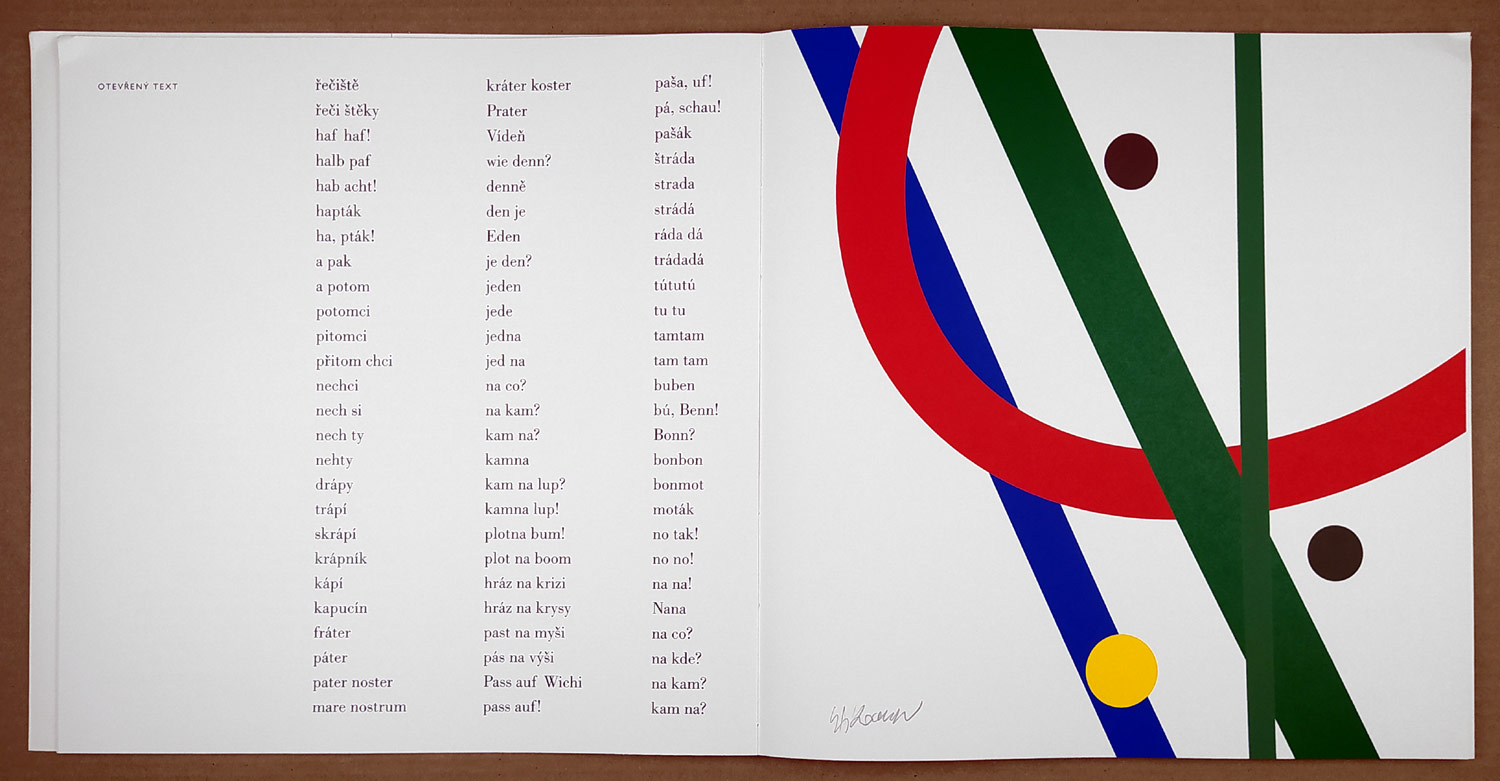 OTEVŘENÝ TEXT
řečiště
řeči štěky
haf haf!
halb paf
hab acht!
hapták
ha, pták!
a pak
a potom
potomci
pitomci
přitom chci
nechci
nech si
nech ty
nehty
drápy
trápí
skrápí
krápník
kápí
kapucín
fráter
páter
pater noster
mare nostrum
kráter koster
Prater
Vídeň
wie denn?
denně
den je
Eden
je den?
jeden
jede
jedna
jed na
na co?
na kam?
kam na?
kamna
kam na lup?
kamna lup!
plotna bum!
plot na boom
hráz na krizi
hráz na krysy
past na myši
pás na výši
Pass auf Wichi
pass auf!
paša, uf!
pá, schau!
pašák
štráda
strada
strádá
ráda dá
trádadá
tútutú
tu tu
tamtam
tam tam
buben
bú, Benn!
Bonn?
bonbon
bonmot
moták
no tak!
no no!
na na!
Nana
na co?
na kde?
na kam?
kam na?